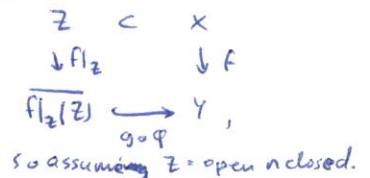 Z ⊂ X
↓ f|_Z ↓ f
\overline{f|_Z(Z)} ⟶ Y ,
g∘φ
so assume Z = open n closed.